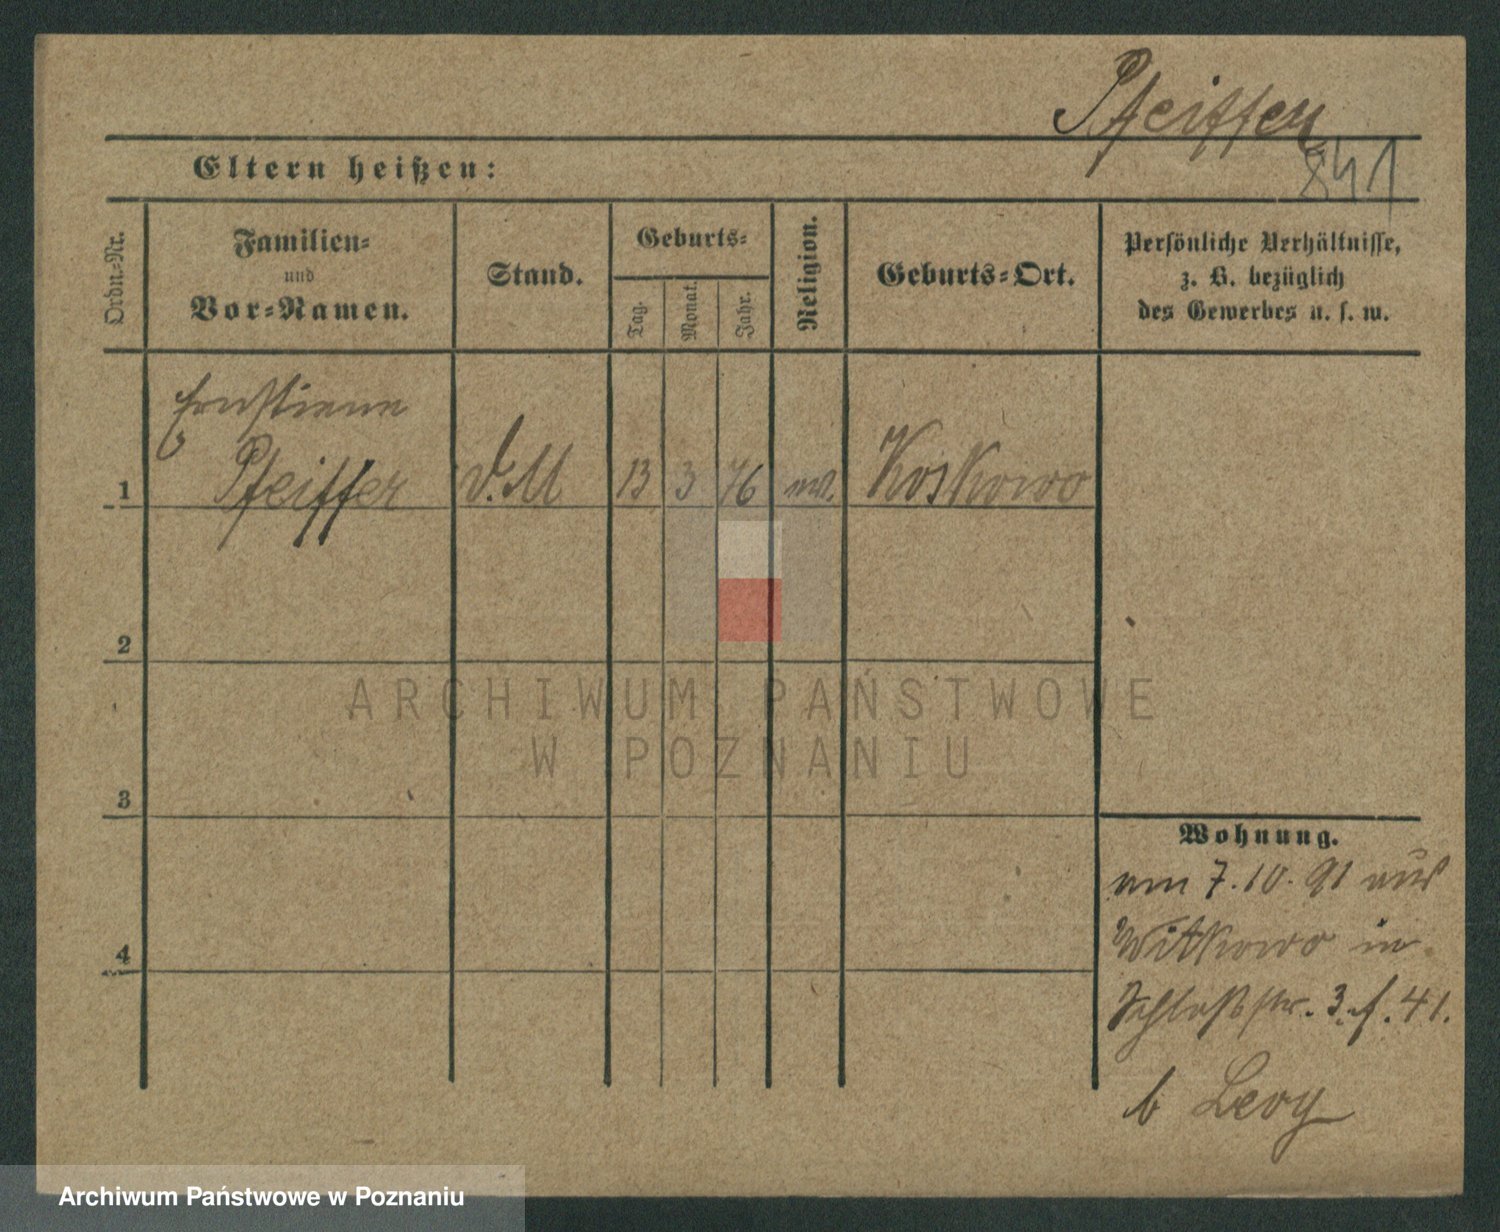 Pfeiffer
841
Eltern heißen:
Ordn.-Nr.
Familien-
und
Vor-Namen.
Stand.
Geburts-
Tag.
Monat.
Jahr.
Religion.
Geburts-Ort.
Persönliche Verhältnisse,
z. B. bezüglich
des Gewerbes u. s. w.
Ernstiene
1 Pfeiffer d. M 13 3 76 ev. Koskowo
2
3
4
Wohnung.
am 7.10.91 aus
Witkowo in
Schloßstr. 3. f. 41.
b Levy
ARCHIWUM PAŃSTWOWE
W POZNANIU
Archiwum Państwowe w Poznaniu